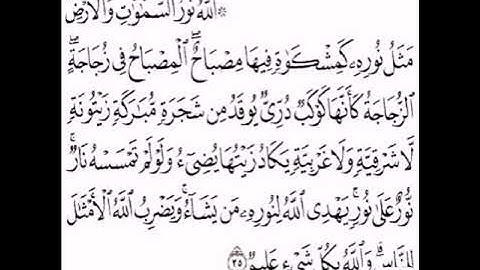 ۞ٱللَّهُ نُورُ ٱلسَّمَٰوَٰتِ وَٱلْأَرْضِ
مَثَلُ نُورِهِۦ كَمِشْكَوٰةٍ فِيهَا مِصْبَاحٌ ۖ ٱلْمِصْبَاحُ فِى زُجَاجَةٍ ۖ
ٱلزُّجَاجَةُ كَأَنَّهَا كَوْكَبٌ دُرِّىٌّ يُوقَدُ مِن شَجَرَةٍ مُّبَٰرَكَةٍ زَيْتُونَةٍ
لَّا شَرْقِيَّةٍ وَلَا غَرْبِيَّةٍ يَكَادُ زَيْتُهَا يُضِىٓءُ وَلَوْ لَمْ تَمْسَسْهُ نَارٌ ۚ
نُّورٌ عَلَىٰ نُورٍ ۗ يَهْدِى ٱللَّهُ لِنُورِهِۦ مَن يَشَآءُ ۚ وَيَضْرِبُ ٱللَّهُ ٱلْأَمْثَٰلَ
لِلنَّاسِ ۗ وَٱللَّهُ بِكُلِّ شَىْءٍ عَلِيمٌ ٣٥